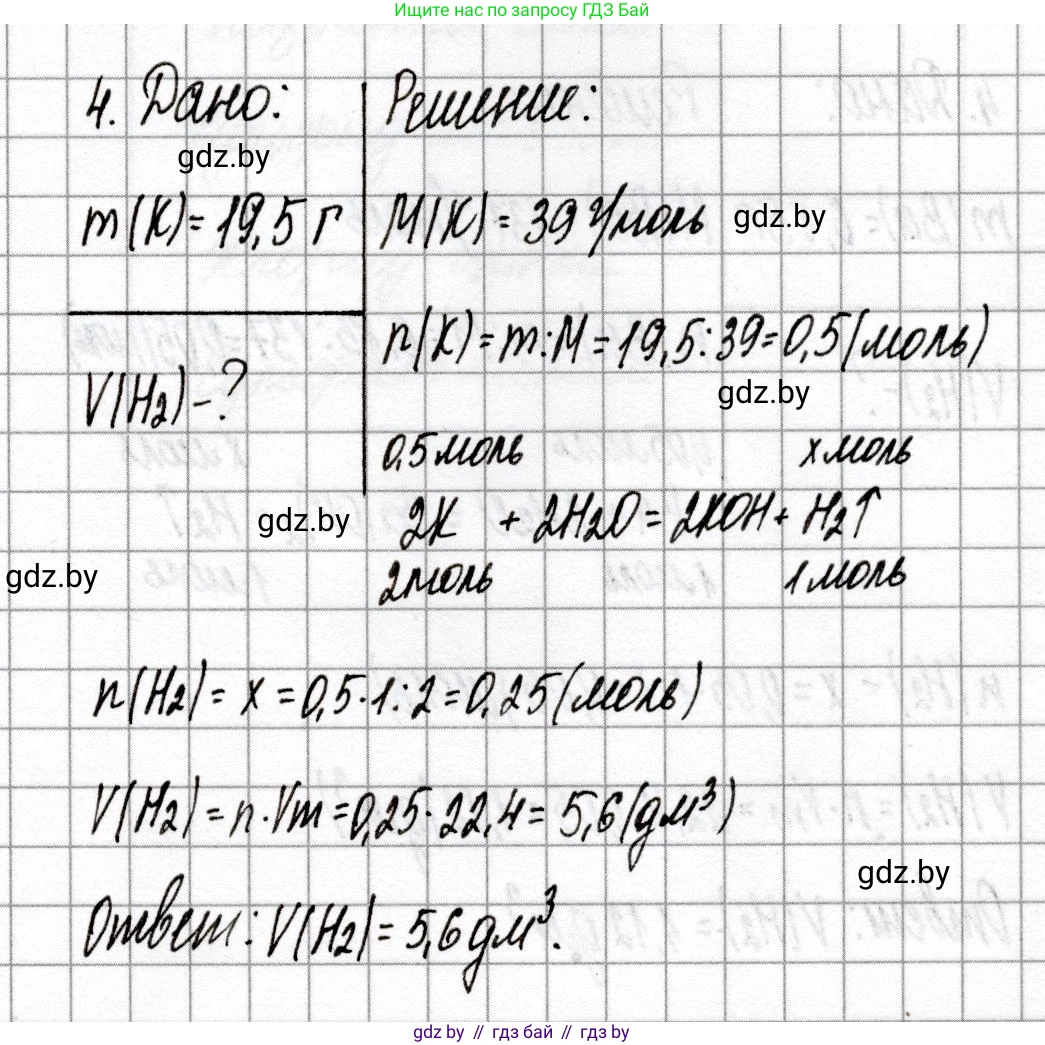 Ищите нас по запросу ГДЗ Бай
4. Дано:
gdz.by
m(K)=19,5 г
V(H₂)-?
Решение:
M(K)=39 г/моль
gdz.by
n(K)=m:M=19,5:39=0,5(моль)
gdz.by
0,5 моль х моль
gdz.by
2K + 2H₂O = 2KOH + H₂↑
gdz.by
2моль 1 моль
n(H₂)= x =0,5·1:2=0,25(моль)
V(H₂)=n·Vm=0,25·22,4=5,6(дм³)
gdz.by
Ответ: V(H₂)=5,6 дм³.
gdz.by // гдз бай // гдз by